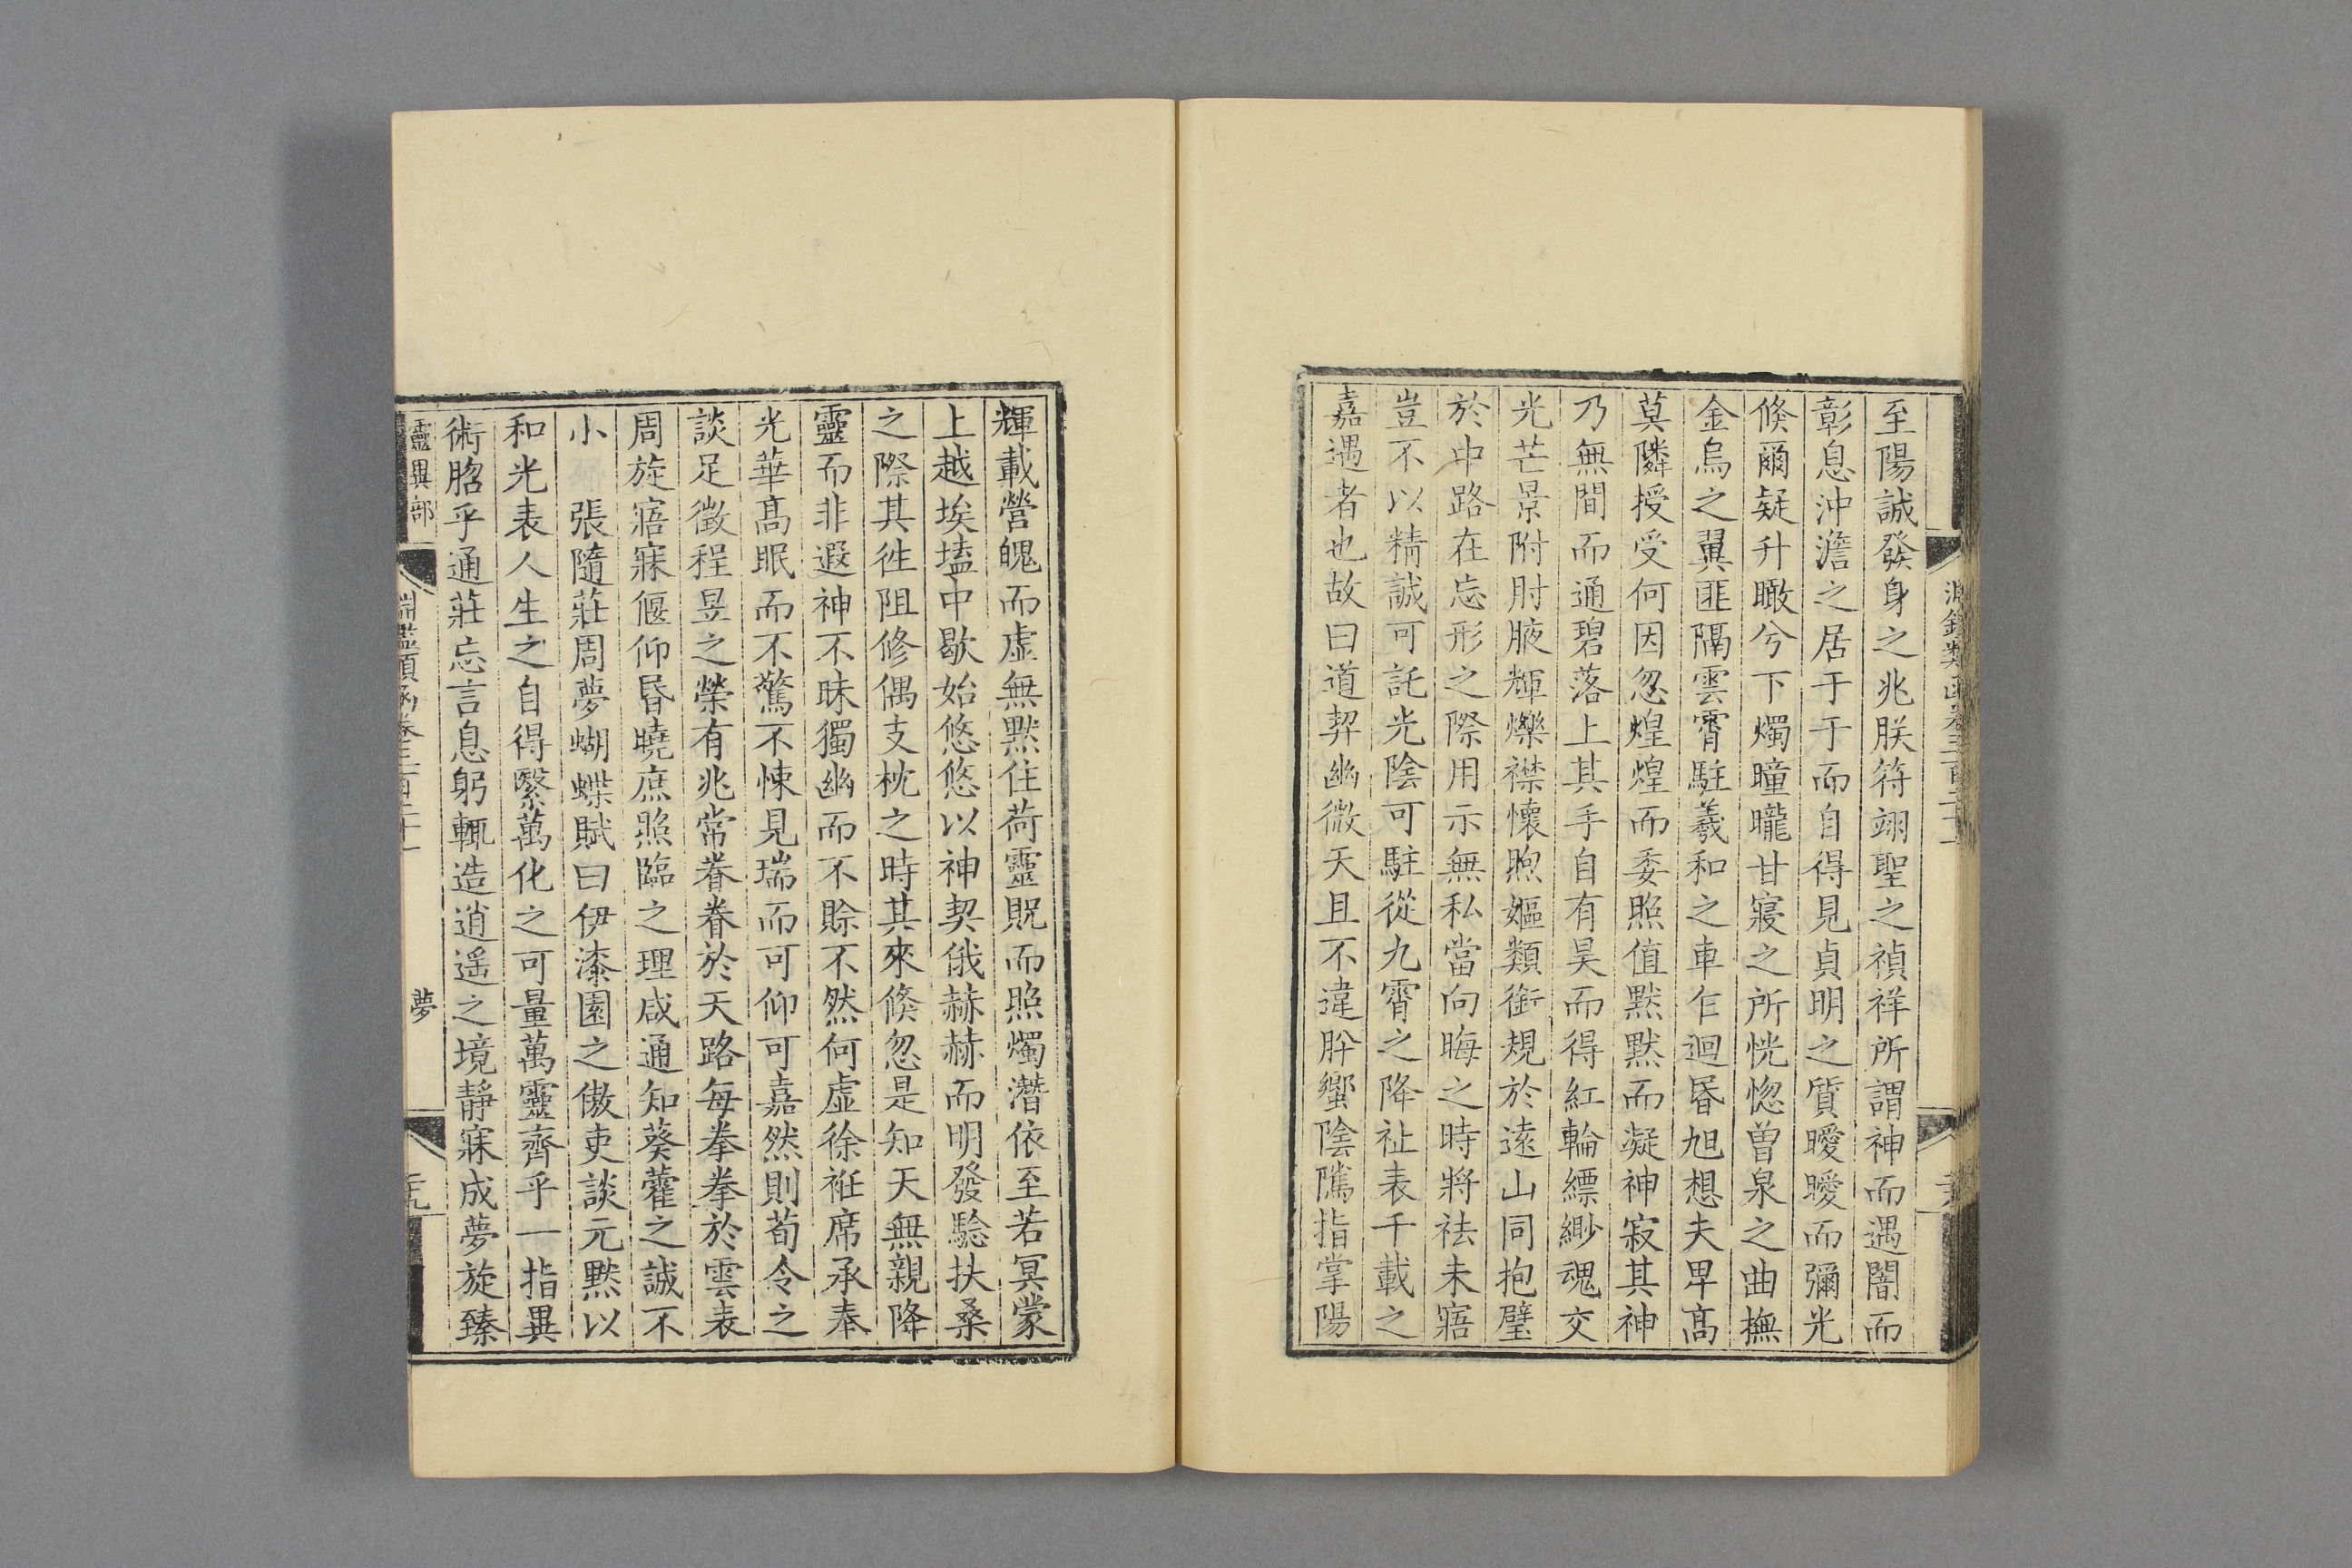 至陽誠發身之兆朕符翊聖之禎祥所謂神而遇闇而
彰息沖澹之居于于而自得見貞明之質曖曖而彌光
倏爾疑升瞰兮下燭曈曨甘寢之所恍惚曾泉之曲撫
金烏之翼匪隔雲霄駐羲和之車乍迴昏旭想夫卑高
莫隣授受何因忽煌煌而委照值默默而凝神寂其神
乃無間而通碧落上其手自有昊而得紅輪縹緲魂交
光芒景附肘腋輝爍襟懷煦嫗類銜規於遠山同抱璧
於中路在忘形之際用示無私當向晦之時將祛未寤
豈不以精誠可託光陰可駐從九霄之降祉表千載之
嘉遇者也故曰道契幽微天且不違肸蠁陰隲指掌陽
輝載營魄而虛無默住荷靈貺而照燭潛依至若冥蒙
上越埃𡏖中歇始悠悠以神契俄赫赫而明發驗扶桑
之際其徃阻修偶支枕之時其來倏忽是知天無親降
靈而非遐神不昧獨幽而不賒不然何虛徐袵席承奉
光華高眠而不驚不悚見瑞而可仰可嘉然則荀令之
談足徵程昱之榮有兆常眷眷於天路每拳拳於雲表
周旋寤寐偃仰昏曉庶照臨之理咸通知葵藿之誠不
小　張隨莊周夢蝴蝶賦曰伊漆園之傲吏談元默以
和光表人生之自得繄萬化之可量萬靈齊乎一指異
術㬱乎通莊忘言息躬輒造逍遙之境靜寐成夢旋臻
靈異部　淵鑑類函卷三百二十一　夢